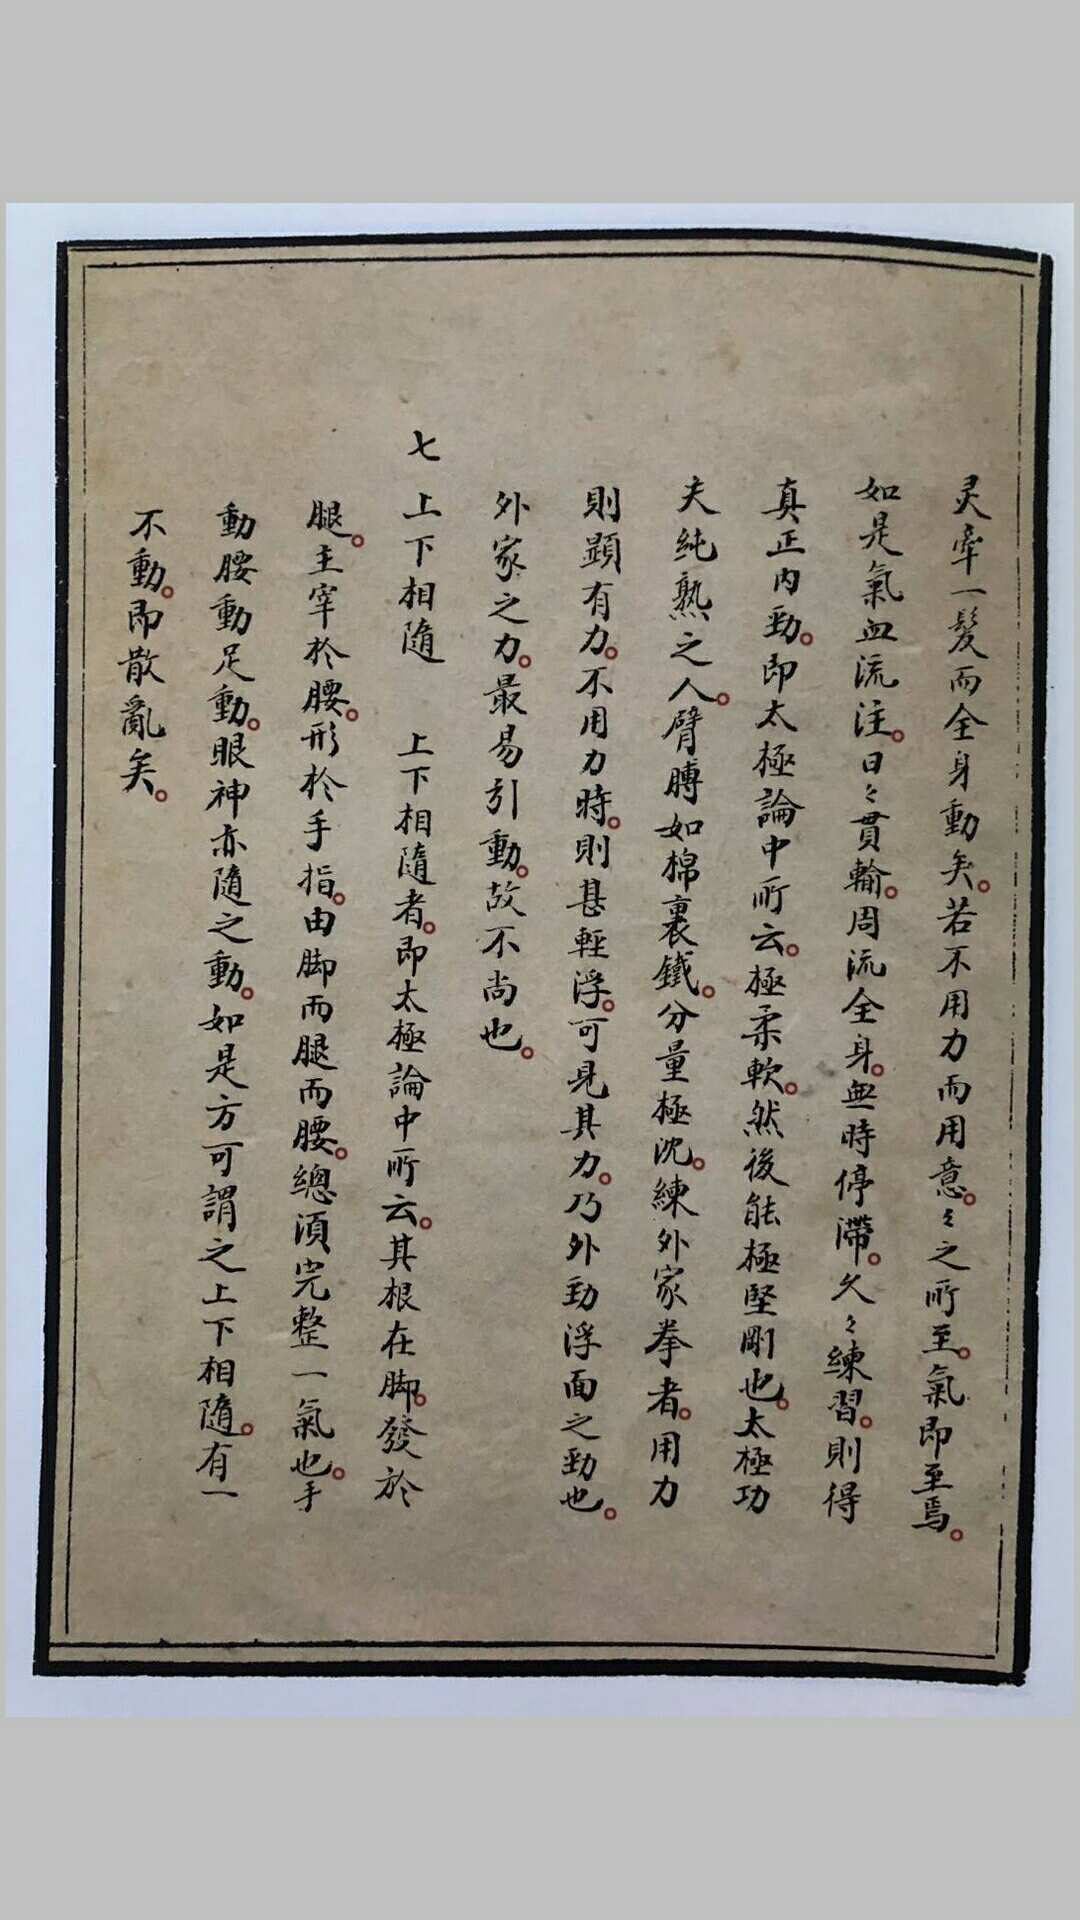 灵牽一髮而全身動矣。若不用力而用意。々之所至。氣即至焉。
如是氣血流注。日々貫輸。周流全身。無時停滯。久々練習。則得
真正內勁。即太極論中所云。極柔軟。然後能極堅剛也。太極功
夫純熟之人。臂膊如棉裏鐵。分量極沈。練外家拳者。用力
則顕有力。不用力時。則甚輕浮。可見其力。乃外勁浮面之勁也。
外家之力。最易引動。故不尚也。
七 上下相隨 上下相隨者。即太極論中所云。其根在脚。發於
腿。主宰於腰。形於手指。由脚而腿而腰。總須完整一氣也。手
動腰動足動。眼神亦隨之動。如是方可謂之上下相隨。有一
不動。即散亂矣。